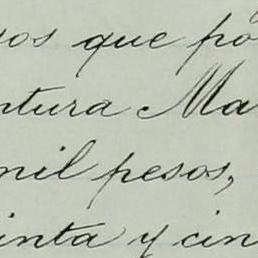 sos que po
ntura Ma
mil pesos,
inta y cin